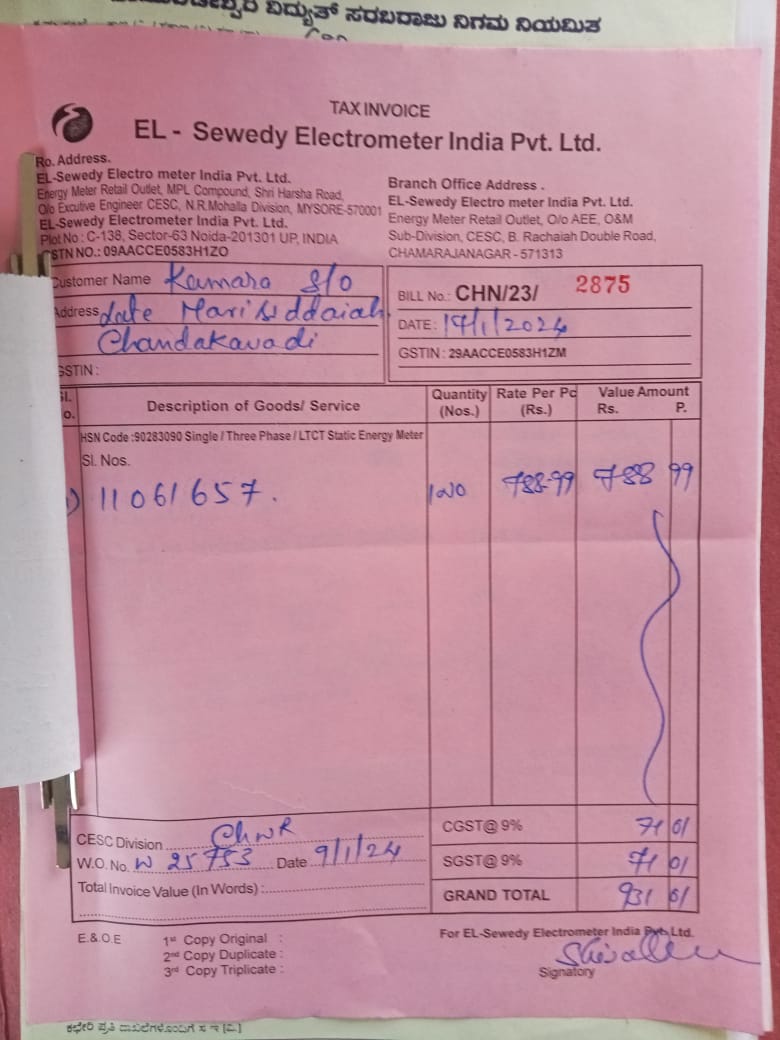 ವಿದ್ಯುತ್ ಸರಬರಾಜು ನಿಗಮ ನಿಯಮಿತ
TAX INVOICE
EL - Sewedy Electrometer India Pvt. Ltd.
Ro. Address.
EL-Sewedy Electro meter India Pvt. Ltd.
Energy Meter Retail Outlet, MPL Compound, Shri Harsha Road,
O/o Excutive Engineer CESC, N.R.Mohalla Division, MYSORE-570001
EL-Sewedy Electrometer India Pvt. Ltd.
Plot No : C-138, Sector-63 Noida-201301 UP, INDIA
GSTN NO.: 09AACCE0583H1ZO
Branch Office Address .
EL-Sewedy Electro meter India Pvt. Ltd.
Energy Meter Retail Outlet, O/o AEE, O&M
Sub-Division, CESC, B. Rachaiah Double Road,
CHAMARAJANAGAR - 571313
Customer Name Kamara S/o
Address late Marisiddaiah
Chandakavadi
GSTIN :
BILL No.: CHN/23/ 2875
DATE : 19/1/2024
GSTIN : 29AACCE0583H1ZM
Sl. No. Description of Goods/ Service Quantity (Nos.) Rate Per Pc (Rs.) Value Amount Rs. P.
HSN Code :90283090 Single / Three Phase / LTCT Static Energy Meter
Sl. Nos.
1) 11061657. 1No 788-99 788 99
CESC Division ChNR
W.O. No. W 25753 Date 9/1/24
Total Invoice Value (In Words) :
CGST@ 9% 71 01
SGST@ 9% 71 01
GRAND TOTAL 931 01
E.& O.E 1st Copy Original :
2nd Copy Duplicate :
3rd Copy Triplicate :
For EL-Sewedy Electrometer India Pvt. Ltd.
Signatory